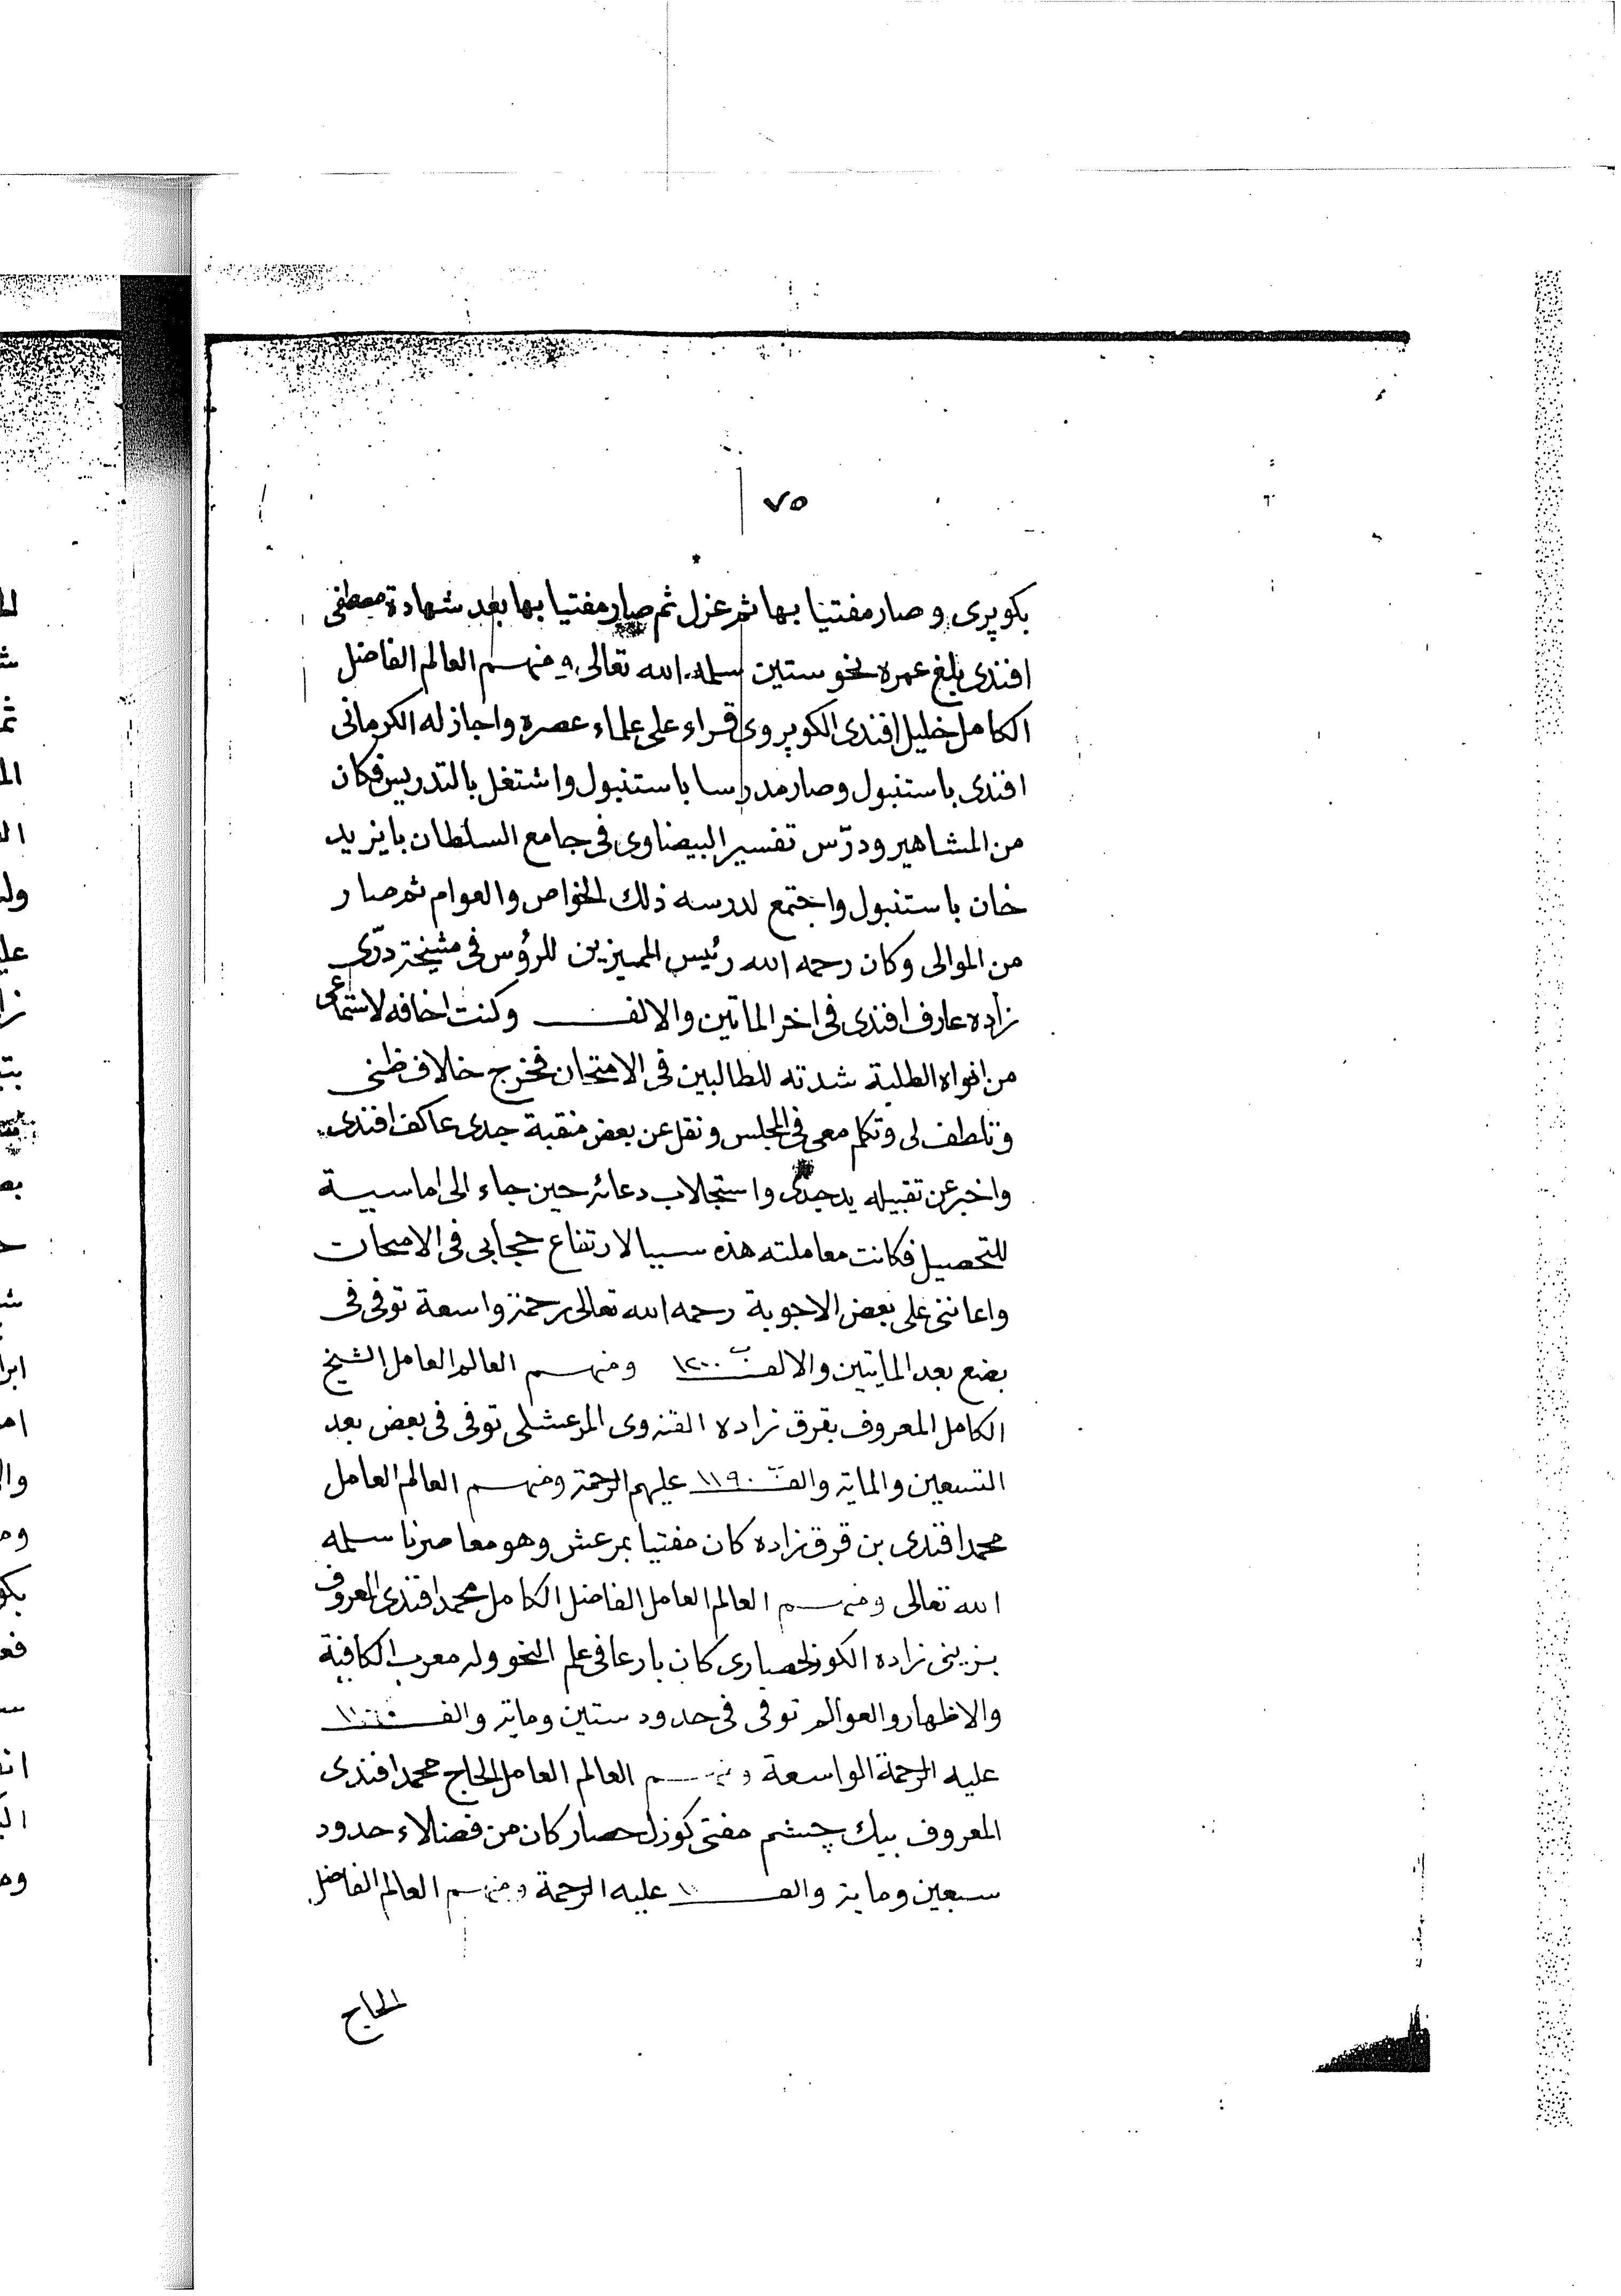 ٧٥
بكوپرى وصار مفتيا بها ثم عزل ثم صار مفتيا بها بعد شهادة مصطفى
افندى بلغ عمره نحو ستين سلمه الله تعالى ومنهم العالم الفاضل
الكامل خليل افندى الكوپروى قراء على علماء عصره واجاز له الكرمانى
افندى باستنبول وصار مدرسا باستنبول واشتغل بالتدريس فكان
من المشاهير ودرّس تفسير البيضاوى فى جامع السلطان بايزيد
خان باستنبول واجتمع لدرسه ذلك الخواص والعوام ثم صار
من الموالى وكان رحمه الله رئيس المميزين للرؤس فى مشيخة درّى
زاده عارف افندى فى اخر الماتين والالف وكنت اخافه لاستماعى
من افواه الطلبة شدته للطالبين فى الامتحان فخرج خلاف ظنى
وتلطف لى وتكلم معى فى المجلس ونقل عن بعض منقبة جدى عاكف افندى
واخبر عن تقبيله يد جدى واستجلاب دعائه حين جاء الى اماسية
للتحصيل فكانت معاملته هذه سببا لارتفاع حجابى فى الامحان
واعاننى على بعض الاجوبة رحمه الله تعالى رحمة واسعة توفى فى
بضع بعد المايتين والالف ١٢٠٠ ومنهم العالم العامل الشيخ
الكامل المعروف بقرق زاده القنوى المرعشلى توفى فى بعض بعد
التسعين والماية والف ١١٩٠ عليهم الرحمة ومنهم العالم العامل
محمد افندى بن قرق زاده كان مفتيا بمرعش وهو معاصرنا سلمه
الله تعالى ومنهم العالم العامل الفاضل الكامل محمد افندى المعروف
بزينى زاده الكوزلحصارى كان بارعا فى علم النحو وله معرب الكافية
والاظهار والعوالم توفى فى حدود ستين وماية والف
عليه الرحمة الواسعة ومنهم العالم العامل الحاج محمد افندى
المعروف بيك چشم مفتى كوزل حصار كان من فضلاء حدود
سبعين وماية والف عليه الرحمة ومنهم العالم الفاضل
الحاج